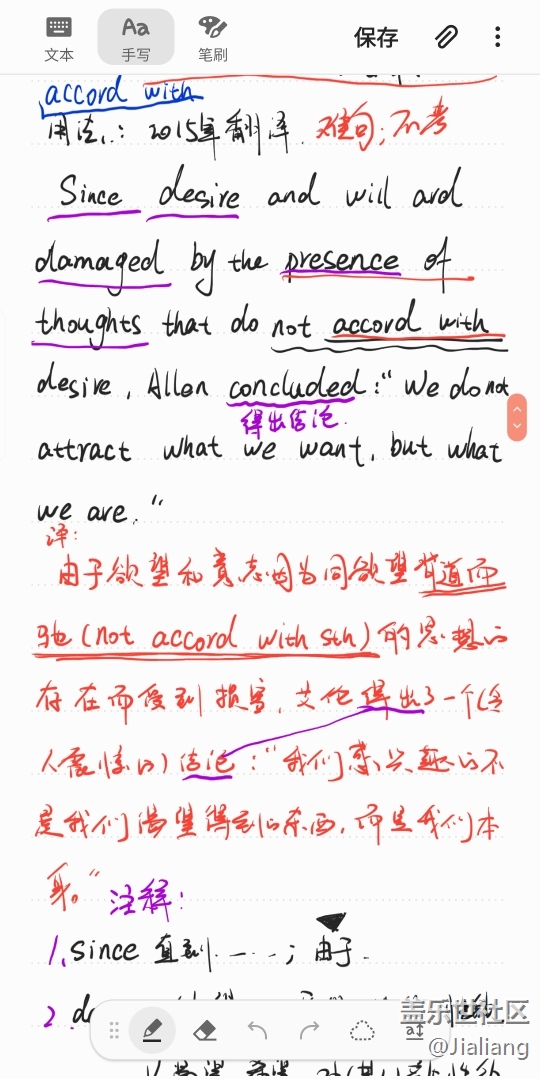 文本
Aa
手写
笔刷
保存
accord with
用法1: 2015年翻译. 难句;不考
Since desire and will ard
damaged by the presence of
thoughts that do not accord with
desire, Allen concluded:"We do not
得出结论.
attract what we want, but what
we are."
译:
由于欲望和意志因为同欲望背道而
驰(not accord with sth)的思想的
存在而受到损害,艾伦得出了一个(令
人震惊的)结论:"我们感兴趣的不
是我们渴望得到的东西,而是我们本
身。"
注释:
1.since 直到……; 由于.
2.
盖乐世社区
@Jialiang